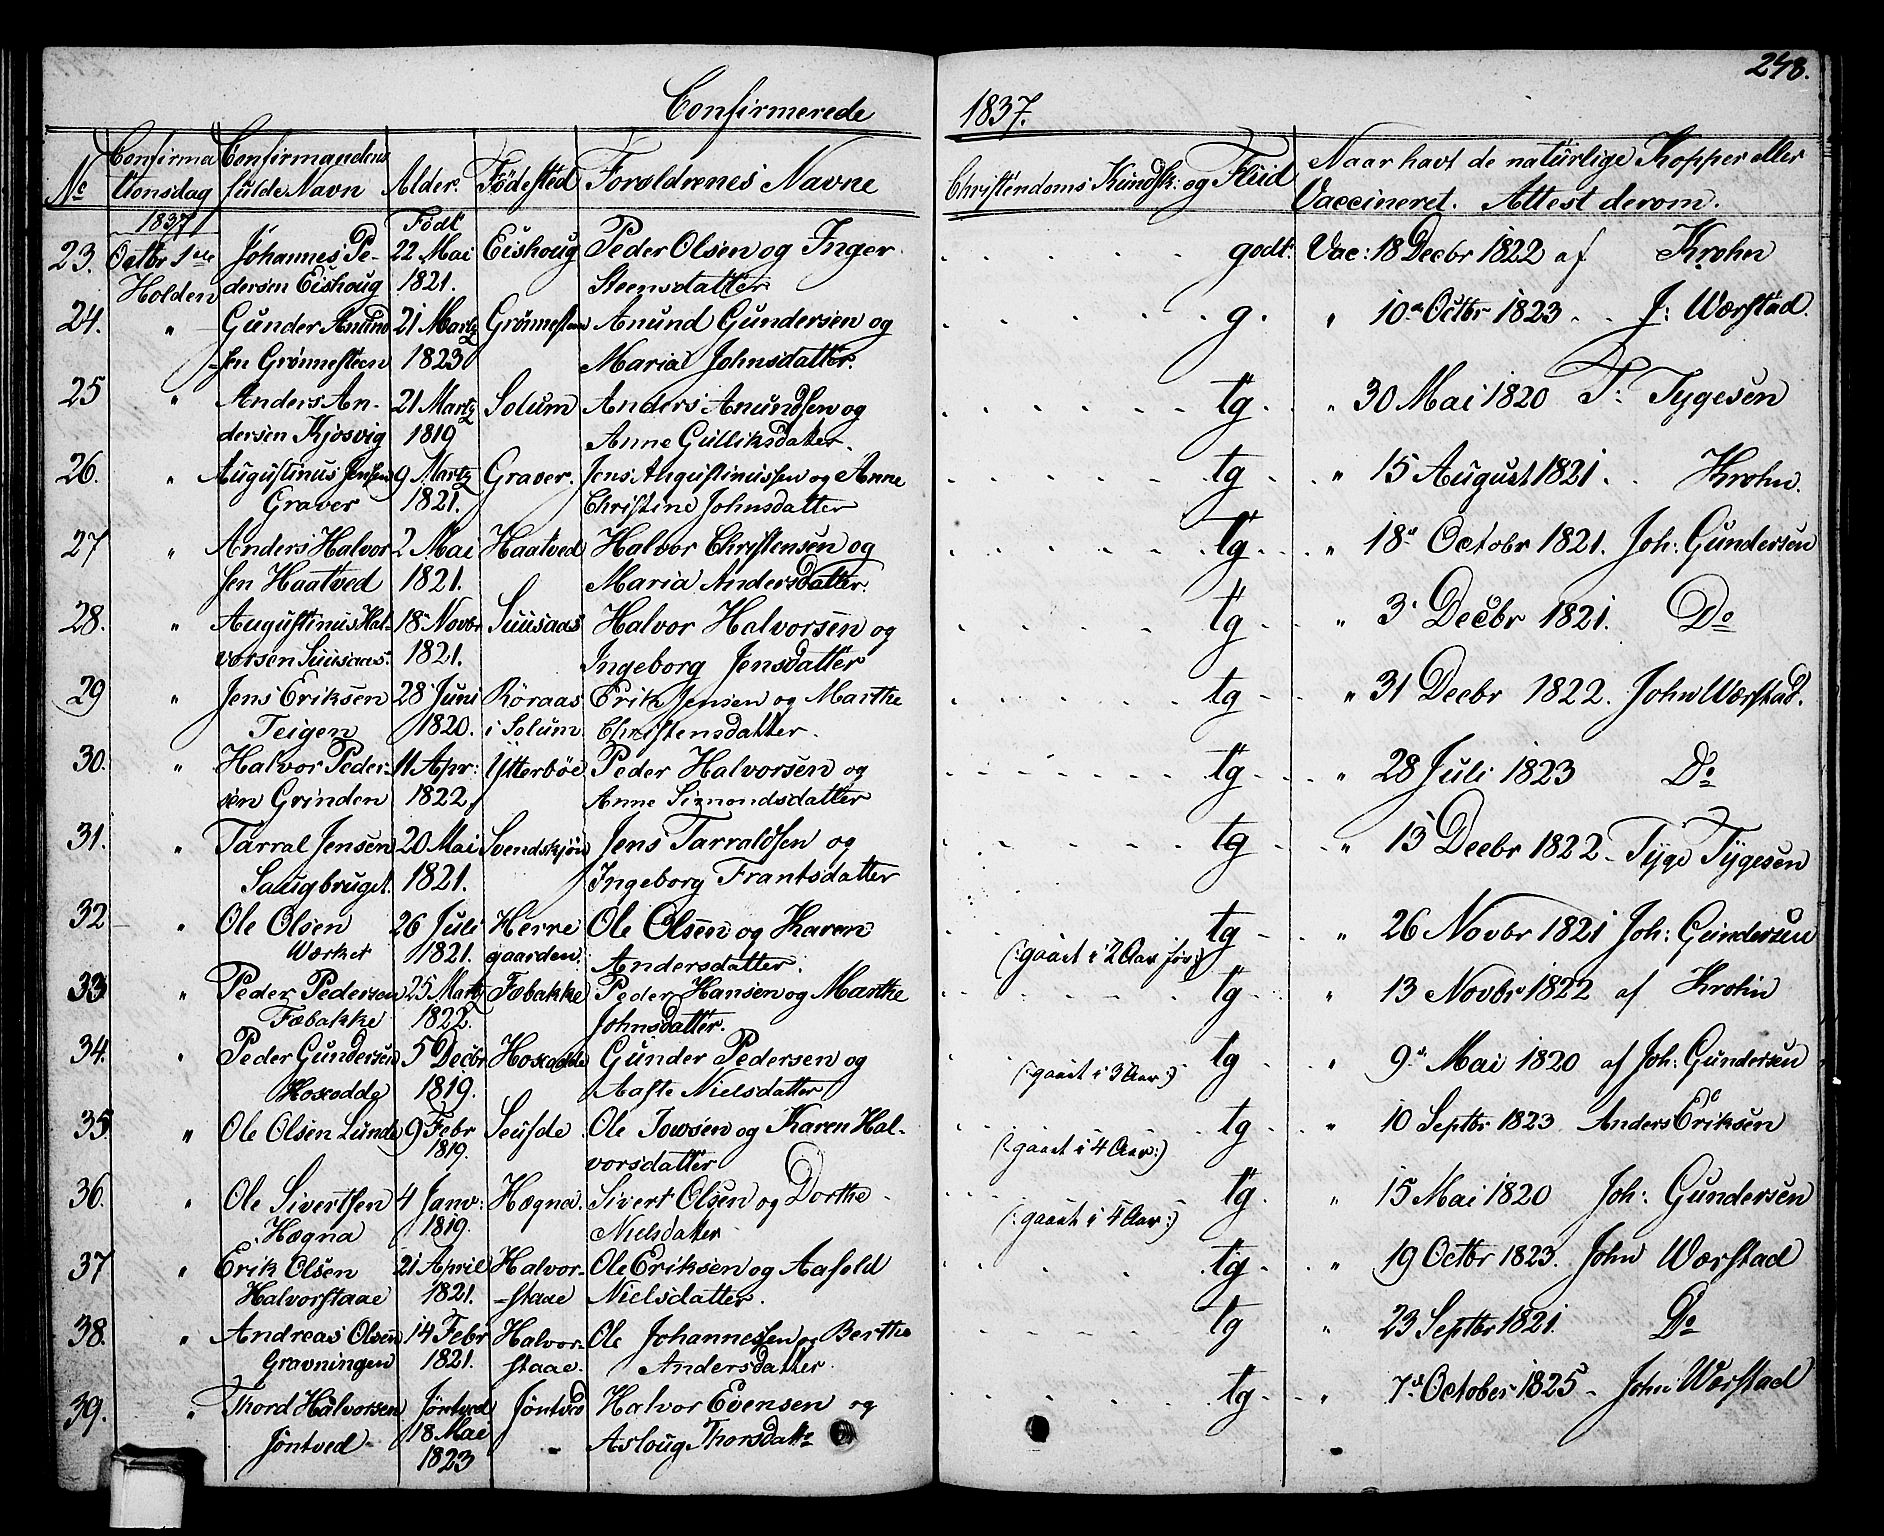 248.
Confirmerede 1837.
No Confirmationsdag Confirmandens fulde Navn Alder. Födested Forældrenes Navne Christendoms Kundsk: og Fliid Naar havt de naturlige Kopper eller Vaccineret. Attest derom.
1837 Födt
23. Octbr 1ste Johannes Pe- 22 Mai Eishoug Peder Olsen og Inger godt. Vac: 18 Decbr 1822 af Krohn
Holden dersen Eishoug 1821. Steensdatter
24. " Gunder Anund 21 Martz Grönnesteen Anund Gundersen og g. " 10de Octbr 1823 J: Wærstad.
-sen Grönnesteen 1823 Maria Johnsdatter.
25 " Anders An- 21 Martz Solum Anders Anundsen og tg. " 30 Mai 1820 T: Tygesen
dersen Kjosvig 1819 Anne Gulliksdatter.
26. " Augustinus Jensen 9 Martz Graver. Jens Augustinussen og Anne tg " 15 August 1821. Krohn.
Graver 1821. Christine Johnsdatter
27 " Anders Halvor 2 Mai Haatved Halvor Christensen og tg " 18de Octobr 1821. Joh: Gundersen
sen Haatved 1821. Maria Andersdatter.
28. " Augustinus Hal- 18 Novbr Suusaas Halvor Halvorsen og tg " 3 Decbr 1821. Do
vorsen Suusaas. 1821. Ingeborg Jensdatter
29 " Jens Eriksen 28 Juni Roraas Erik Jensen og Marthe tg " 31 Decbr 1822. John Wærstad.
Teigen 1820. i Solum Christensdatter.
30. " Halvor Peder- 11 Apr: Ytterböe Peder Halvorsen og tg " 28 Juli 1823 Do
sen Grinden 1822 Anne Simondsdatter
31. " Tarral Jensen 20 Mai Svendskjön Jens Tarraldsen og tg " 15 Decbr 1822 - Tyge Tygesen
Saugbruget. 1821. Ingeborg Frantsdatter
32 " Ole Olsen 26 Juli Herre Ole Olsen og Karen tg " 26 Novbr 1821 Joh: Gundersen
Wærket 1821. gaarden. Andersdatter. (:gaaet i 2 Aar för:)
33 " Peder Pedersen 25 Martz Fæbakke Peder Hansen og Marthe tg " 13 Novbr 1822 af Krohn
Fæbakke 1822. Johnsdatter.
34. " Peder Gundersen 5 Decbr Hoxodde Gunder Pedersen og tg " 9de Mai 1820 af Joh: Gundersen
Hoxodde 1819. Aaste Nielsdatter (:gaaet i 3 Aar:)
35 " Ole Olsen Lunde 9 Febr Seusde Ole Jowsen og Karen Hal- tg " 10 Septbr 1823 Anders Eriksen
1819. vorsdatter (:gaaet i 4 Aar:)
36. " Ole Sivertsen 4 Janv: Hægna. Sivert Olsen og Dorthe tg. " 15 Mai 1820 Joh: Gundersen
Hægna 1819. Nielsdatter (:gaaet i 4 Aar:)
37 " Erik Olsen 21 April Halvor- Ole Eriksen og Aasold tg " 19 Octbr 1823. John Wærstad
Halvorstaae 1821. -staae Nielsdatter.
38. " Andreas Olsen 14 Febr Halvor- Ole Johannessen og Berthe tg " 23 Septbr 1821. Do
Gravningen 1821. staae. Andersdatter.
39. " Thord Halvorsen Jöntved Jöntved Halvor Evensen og tg " 7de October 1825 - John Wærstad
Jöntved 18 Mai Asloug Thorsdatte
1823